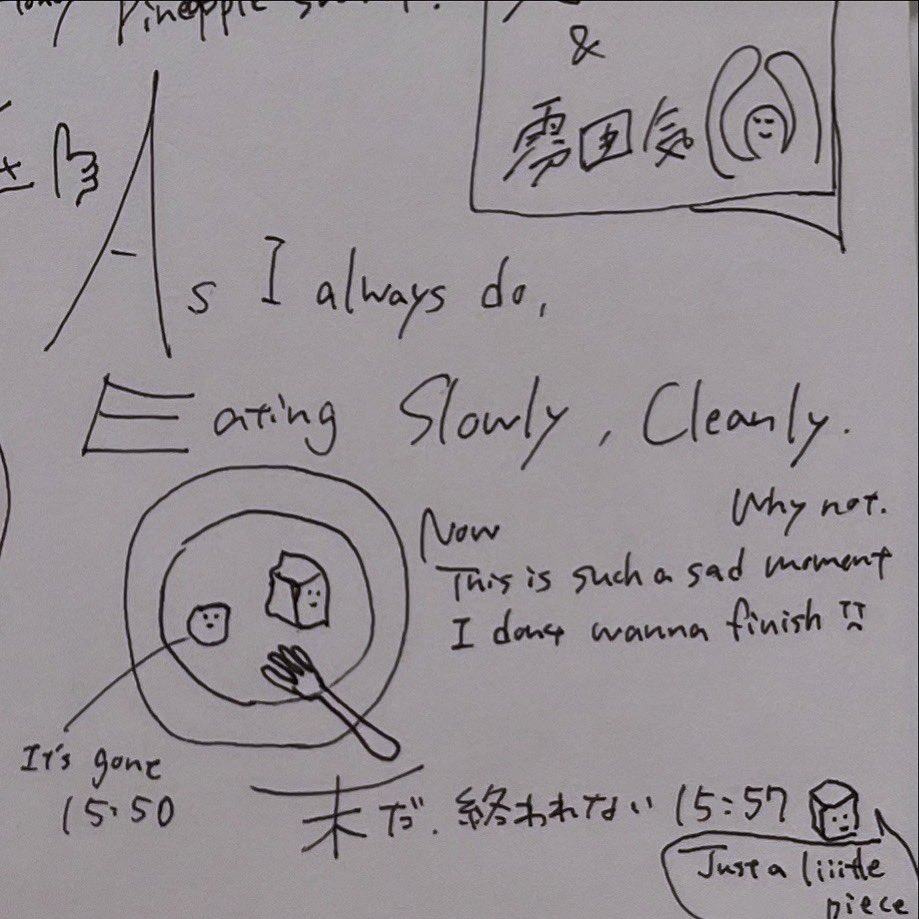 pineapple
&
雰囲気
As I always do,
Eating Slowly, Cleanly.
Why not.
Now
This is such a sad moment
I dont wanna finish
It's gone
15:50
未だ.終われない 15:57
Just a liiitle
piece